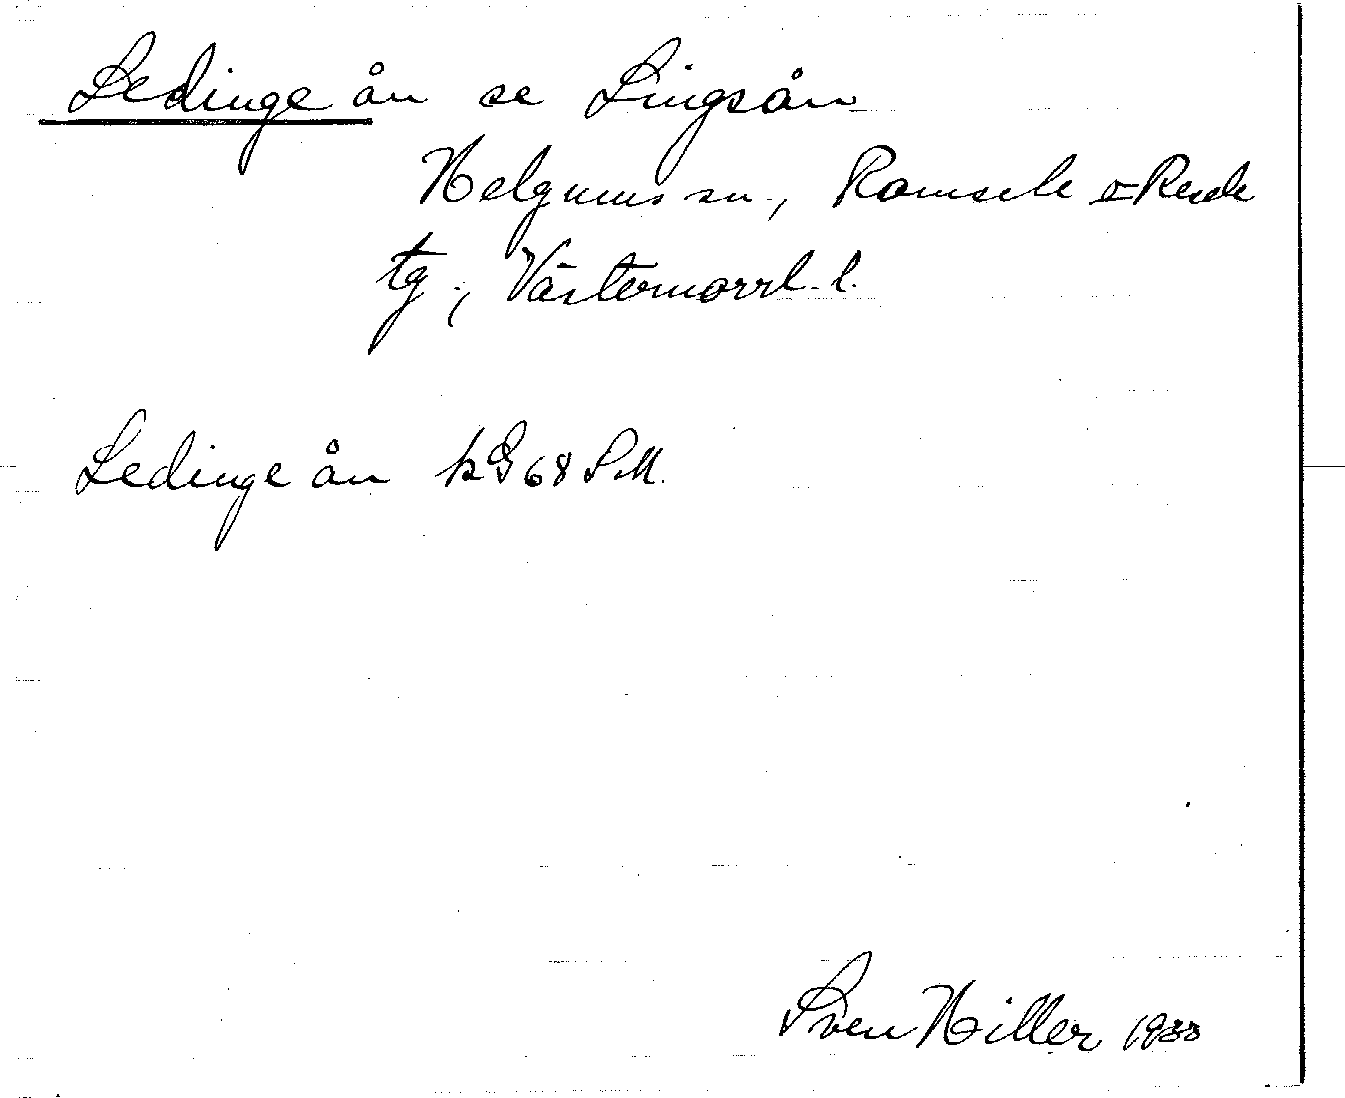 Ledinge ån se Lingsån
Helgums sn., Ramsele o Resele
tg., Västernorrl. l.
Ledinge ån kG68 SM.
Sven Hiller 1933